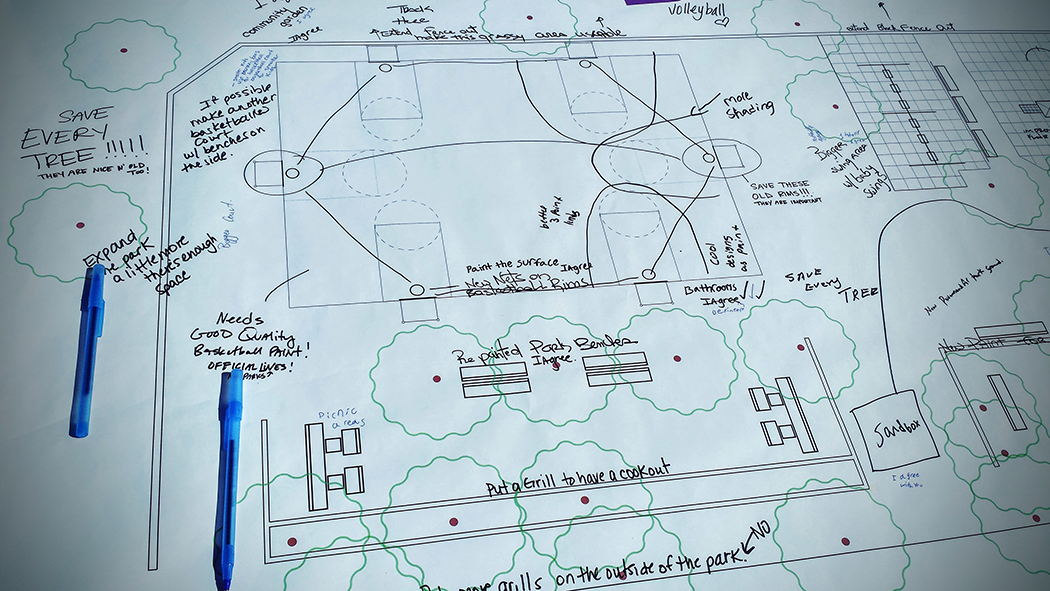 community
garden
I agree
IAgree
There
Extend Fence out
make this grassy area useable
Volleyball
extend Black Fence Out
If possible
make another
basketball
court
w/ benches on
the side.
SAVE
EVERY
TREE !!!!!
THEY ARE NICE N' OLD
TOO!
more
Shading
Bigger
swing area
w/ baby
swings
SAVE THESE
OLD RIMS!!!
THEY ARE IMPORTANT
better
3 Point
lines
cool
designs
as paint
Bigger Court.
Expand
the park
a little more
theres enough
space
Paint the surface IAgree
New Nets on
Basketball Rims
Bathrooms
IAgree
Definitely
SAVE
Every
TREE
Needs
GOOD QUALITY
BasketBall PAINT!
OFFICIAL LINES!
Re painted Park Benches
IAgree.
Picnic
areas
Sandbox
I agree
Put a Grill to have a cookout
NO
more grills on the outside of the park!